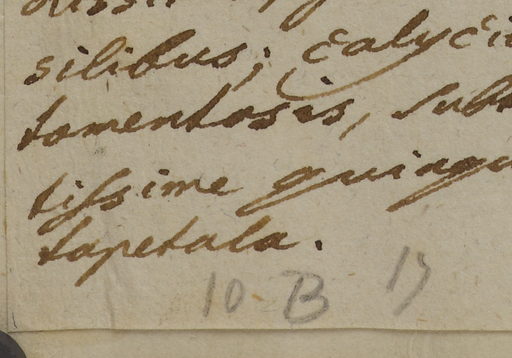 silibus; calyci
tomentosis, sub
tissime quinqu
tapetala.
10 B 19